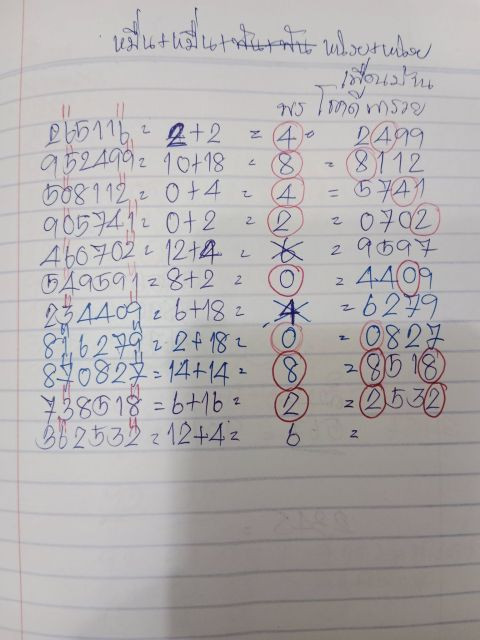 หมื่น+หมื่น+พัน+พัน หน่วย+หน่วย
เพื่อนบ้าน
พร โชคดี พารวย
265116 = 2+2 = 4 = 2499
952499 = 10+18 = 8 = 8112
508112 = 0+4 = 4 = 5741
905741 = 0+2 = 2 = 0702
460702 = 12+4 = 6 = 9597
549591 = 8+2 = 0 = 4409
234409 = 6+18 = 4 = 6279
816279 = 2+18 = 0 = 0827
870827 = 14+14 = 8 = 8518
738518 = 6+16 = 2 = 2532
362532 = 12+4 = 6 =